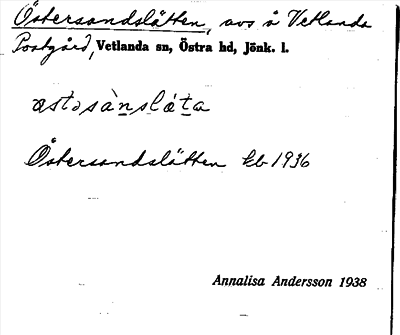 Östersandslätten, avs å Vetlanda
Postgård, Vetlanda sn, Östra hd, Jönk. l.
Östersandslätten kb 1936
Annalisa Andersson 1938